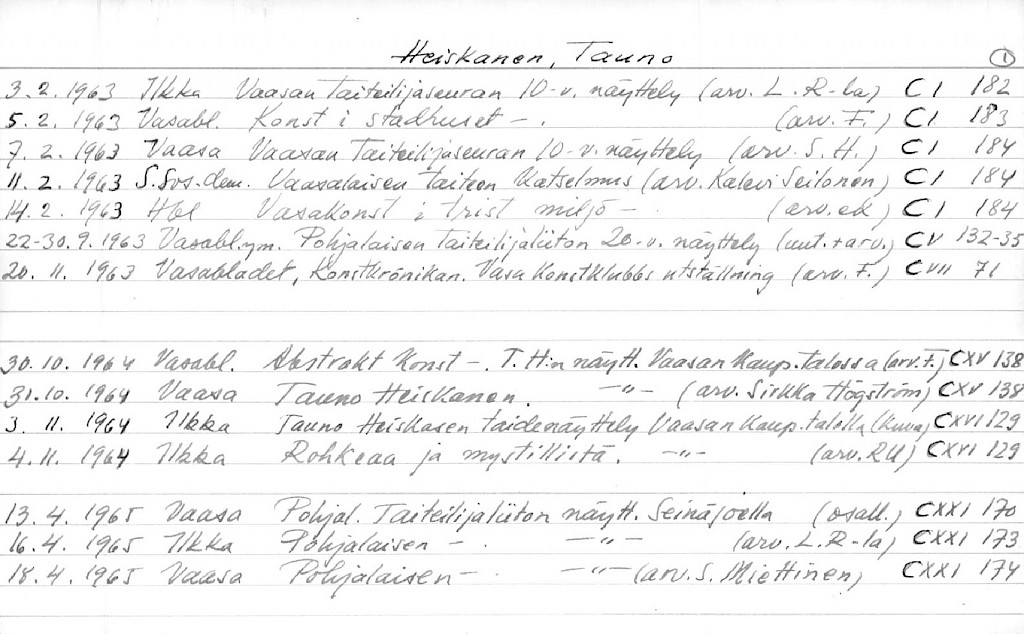 Heiskanen, Tauno 1
3.2. 1963 Ilkka Vaasan Taiteilijaseuran 10-v. näyttely (arv. L. R-la) CI 182
5.2. 1963 Vasabl. Konst i stadhuset - . (arv. F.) CI 183
7.2. 1963 Vaasa Vaasan Taiteilijaseuran 10-v. näyttely (arv. S. H.) CI 184
11.2. 1963 S.Sos.dem. Vaasalaisen taiteen Katselmus (arv. Kalevi Seilonen) CI 184
14.2. 1963 Hbl Vasakonst i trist miljö - . (arv. ek) CI 184
22-30.9.1963 Vasabl. ym. Pohjalaisen Taiteilijaliiton 20-v. näyttely (uut. + arv.) CV 132-35
20. 11. 1963 Vasabladet, Konstkrönikan. Vasa Konstklubbs utställning (arv. F.) CVII 71
30.10. 1964 Vasabl. Abstrakt Konst - . T.H:n näytt. Vaasan Kaup. talossa (arv. F.) CXV 138
31.10. 1964 Vaasa Tauno Heiskanen. -"- (arv. Sirkka Högström) CXV 138
3. 11. 1964 Ilkka Tauno Heiskasen taidenäyttely Vaasan Kaup. talolla (Kuva) CXVI 129
4.11. 1964 Ilkka Rohkeaa ja mystillistä. -"- (arv. RU) CXVI 129
13. 4. 1965 Vaasa Pohjal. Taiteilijaliiton näytt. Seinäjoella (osall.) CXXI 170
16.4. 1965 Ilkka Pohjalaisen - . -"- (arv. L.R-la) CXXI 173
18.4. 1965 Vaasa Pohjalaisen - . -"- (arv. S. Miettinen) CXXI 174